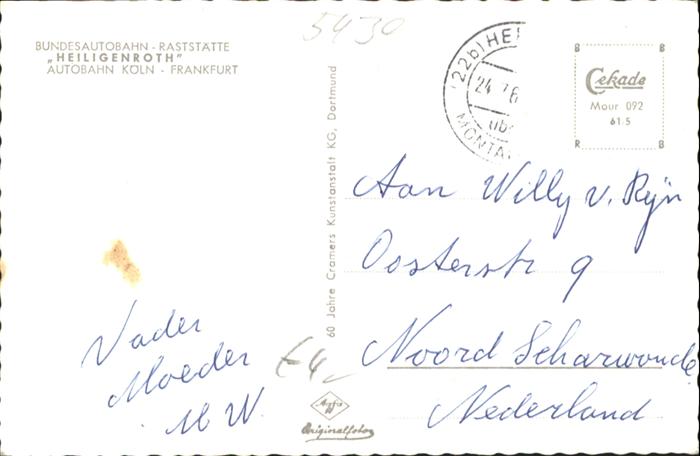 5430
BUNDESAUTOBAHN - RASTSTATTE
„HEILIGENROTH"
AUTOBAHN KÖLN - FRANKFURT
(22b) HEI
24. 7.6
üb
MONTA
B B
Cekade
Mour 092
61 5
R B
60 Jahre Cramers Kunstanstalt KG, Dortmund
Aan Willy v. Ryn
Oosterstr 9
Noord Scharwoude
Nederland
Vader
Moeder
M W.
£4
Agfa
Originalfotos